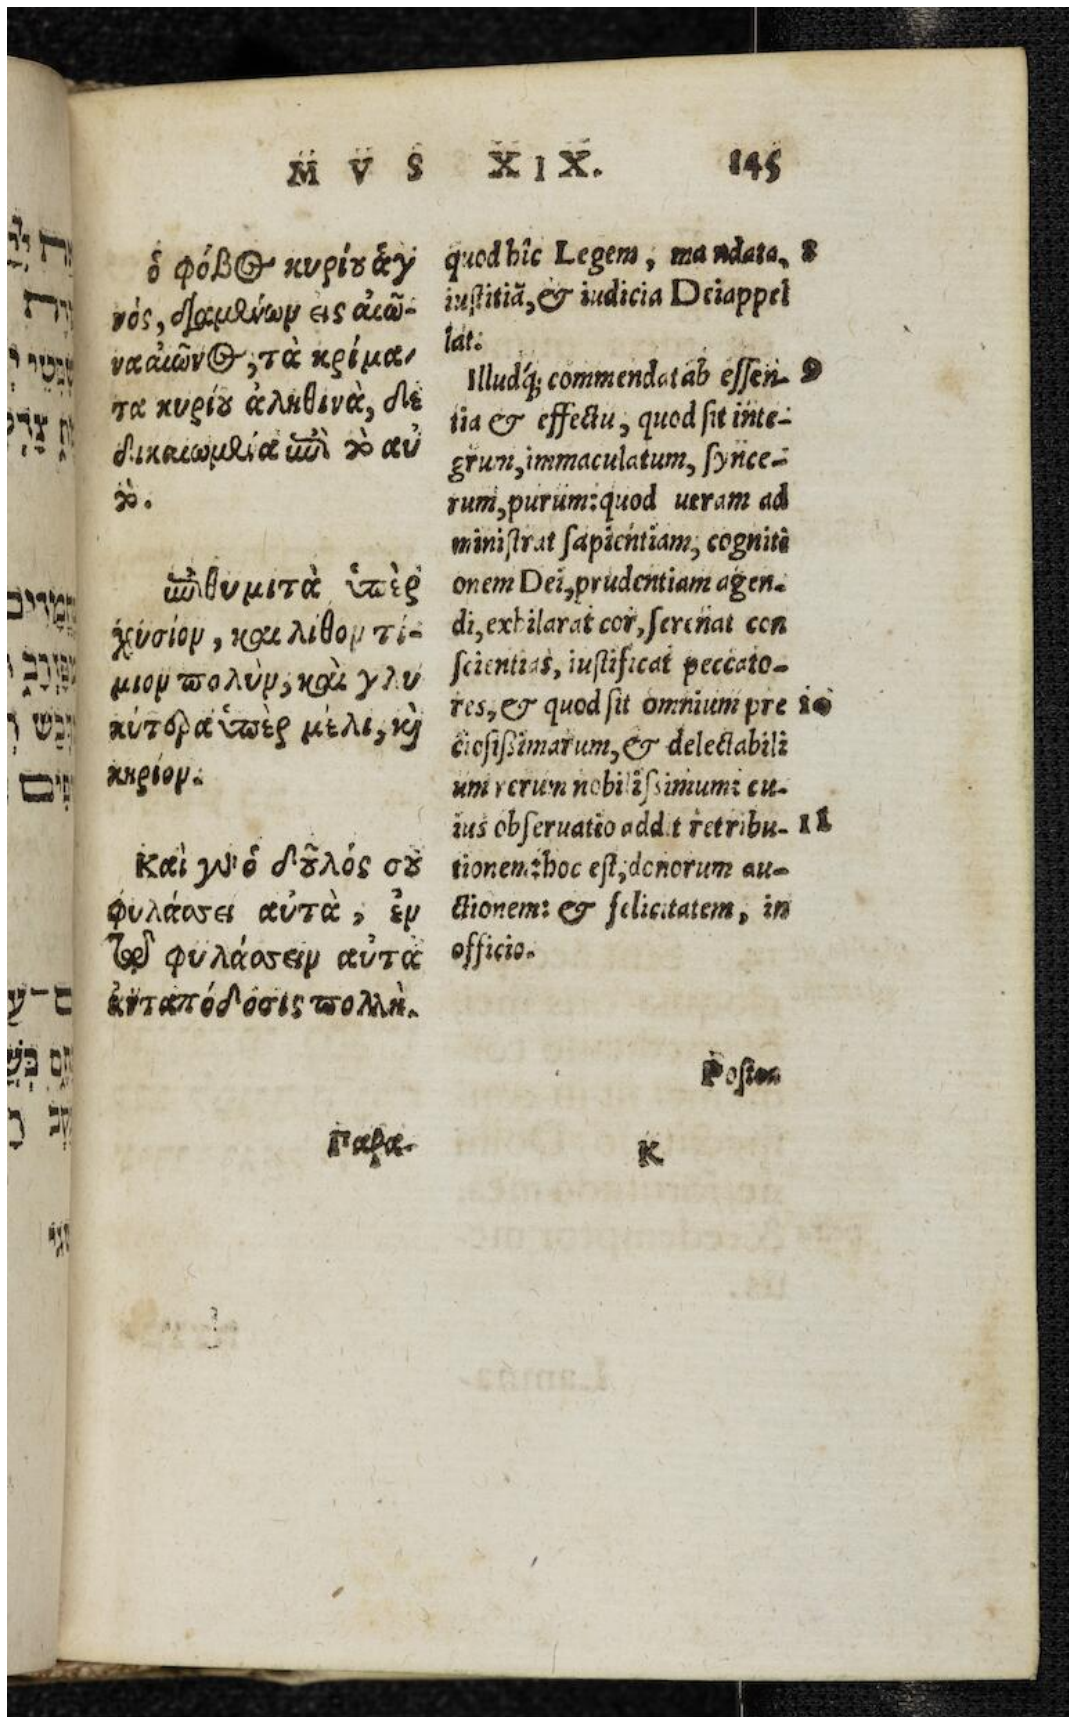 MVS XIX. 145
ὁ φόβος κυρίου ἁγ
νός, διαμένων εἰς αἰῶ-
να αἰῶνος, τὰ κρίμα-
τα κυρίου ἀληθινὰ, δε
δικαιωμένα ἐπὶ τὸ αὐ
τὸ.
ἐπιθυμιτὰ ὑπὲρ
χύσίον, καὶ λίθον τί-
μιον πολὺν, καὶ γλυ
κύτερα ὑπὲρ μέλι, κὶ
κηρίον.
Καὶ γὰρ ὁ δοῦλός σου
φυλάσσει αὐτὰ, ἐν
τῷ φυλάσσειν αὐτὰ
ἀνταπόδοσις πολλὴ.
Παρα-
quod hîc Legem, mandata, 8
iustitiã, & iudicia Dei appel
lat.
Illudq́; commendat ab essen- 9
tia & effectu, quod sit inte-
grum, immaculatum, synce-
rum, purum: quod ueram ad
ministrat sapientiam, cogniti
onem Dei, prudentiam agen-
di, exhilarat cor, serenat con
scientias, iustificat peccato-
res, & quod sit omnium pre 10
ciosissimarum, & delectabili
um rerum nobilissimum: cu-
ius obseruatio addit retribu- 11
tionem: hoc est, donorum au-
ctionem: & felicitatem, in
officio.
Postea
K